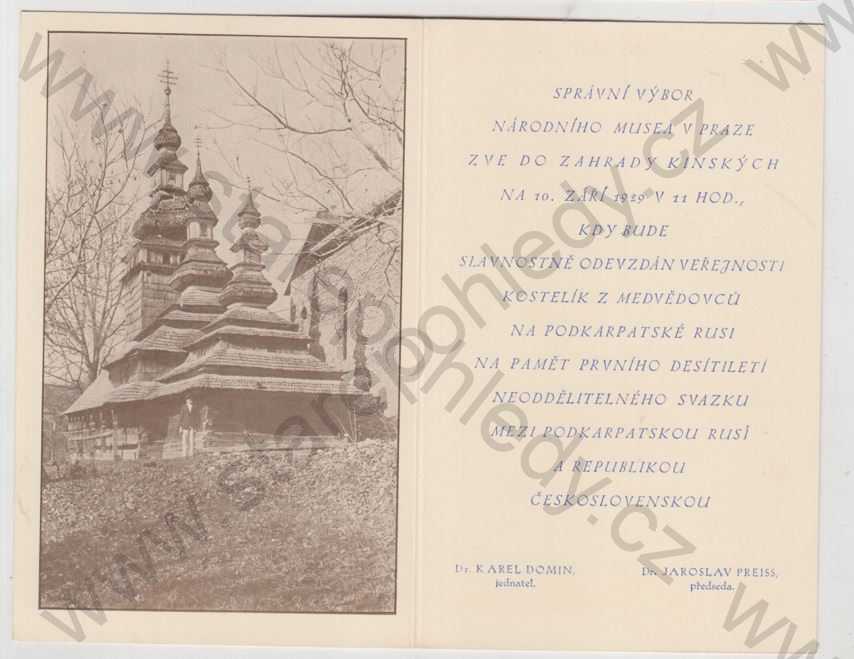 SPRÁVNÍ VÝBOR
NÁRODNÍHO MUSEA V PRAZE
ZVE DO ZAHRADY KINSKÝCH
NA 10. ZÁŘÍ 1929 V 11 HOD.,
KDY BUDE
SLAVNOSTNĚ ODEVZDÁN VEŘEJNOSTI
KOSTELÍK Z MEDVĚDOVCŮ
NA PODKARPATSKÉ RUSI
NA PAMĚT PRVNÍHO DESÍTILETÍ
NEODDĚLITELNÉHO SVAZKU
MEZI PODKARPATSKOU RUSÍ
A REPUBLIKOU
ČESKOSLOVENSKOU
Dr. KAREL DOMIN,
jednatel.
Dr. JAROSLAV PREISS,
předseda.
www.starepohledy.cz
www.starepohledy.cz